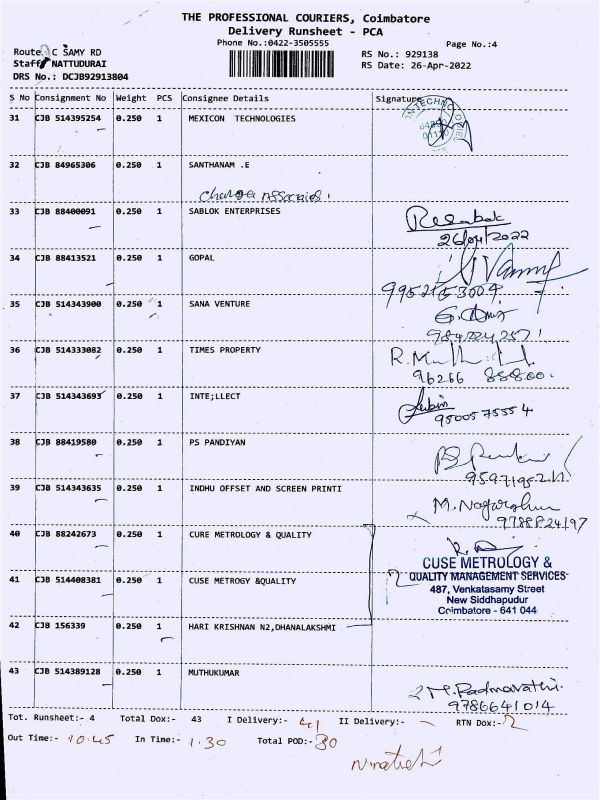 THE PROFESSIONAL COURIERS, Coimbatore
Delivery Runsheet - PCA
Phone No.:0422-3505555
Page No.:4
Route C SAMY RD
RS No.: 929138
Staff NATTUDURAI
RS Date: 26-Apr-2022
DRS No.: DCJB92913804
S No Consignment No Weight PCS Consignee Details Signature
31 CJB 514395254 0.250 1 MEXICON TECHNOLOGIES
32 CJB 84965306 0.250 1 SANTHANAM .E
33 CJB 88400091 0.250 1 SABLOK ENTERPRISES
26/04/2022
34 CJB 88413521 0.250 1 GOPAL
35 CJB 514343900 0.250 1 SANA VENTURE
36 CJB 514333082 0.250 1 TIMES PROPERTY
96266 88800.
37 CJB 514343693 0.250 1 INTE;LLECT
9500575554
38 CJB 88419580 0.250 1 PS PANDIYAN
39 CJB 514343635 0.250 1 INDHU OFFSET AND SCREEN PRINTI
40 CJB 88242673 0.250 1 CURE METROLOGY & QUALITY
CUSE METROLOGY &
QUALITY MANAGEMENT SERVICES
487, Venkatasamy Street
New Siddhapudur
Coimbatore - 641 044
41 CJB 514408381 0.250 1 CUSE METROGY &QUALITY
42 CJB 156339 0.250 1 HARI KRISHNAN N2,DHANALAKSHMI
43 CJB 514389128 0.250 1 MUTHUKUMAR
M.Padmavathi.
9786641014
Tot. Runsheet:- 4 Total Dox:- 43 I Delivery:- 41 II Delivery:- RTN Dox:- 2
Out Time:- 10.45 In Time:- 1.30 Total POD:- 30